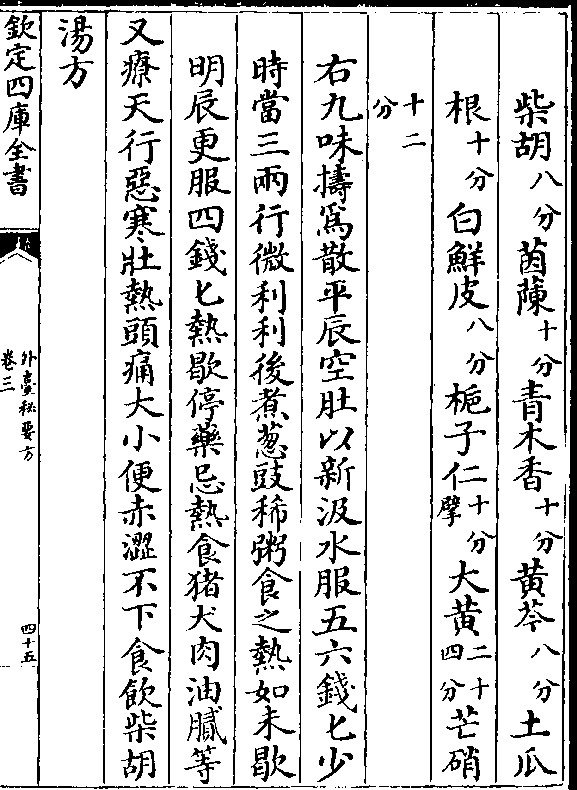 柴胡八分茵蔯十分青木香十分黄芩八分土瓜
根十分白鮮皮八分梔子仁十分擘大黄二十四分芒硝
十二分
右九味擣為散平辰空肚以新汲水服五六錢匕少
時當三兩行微利利後煮葱豉稀粥食之熱如未歇
明辰更服四錢匕熱歇停藥忌熱食猪犬肉油膩等
又療天行惡寒壯熱頭痛大小便赤澀不下食飲柴胡
湯方
欽定四庫全書
外臺秘要方
卷三
四十五